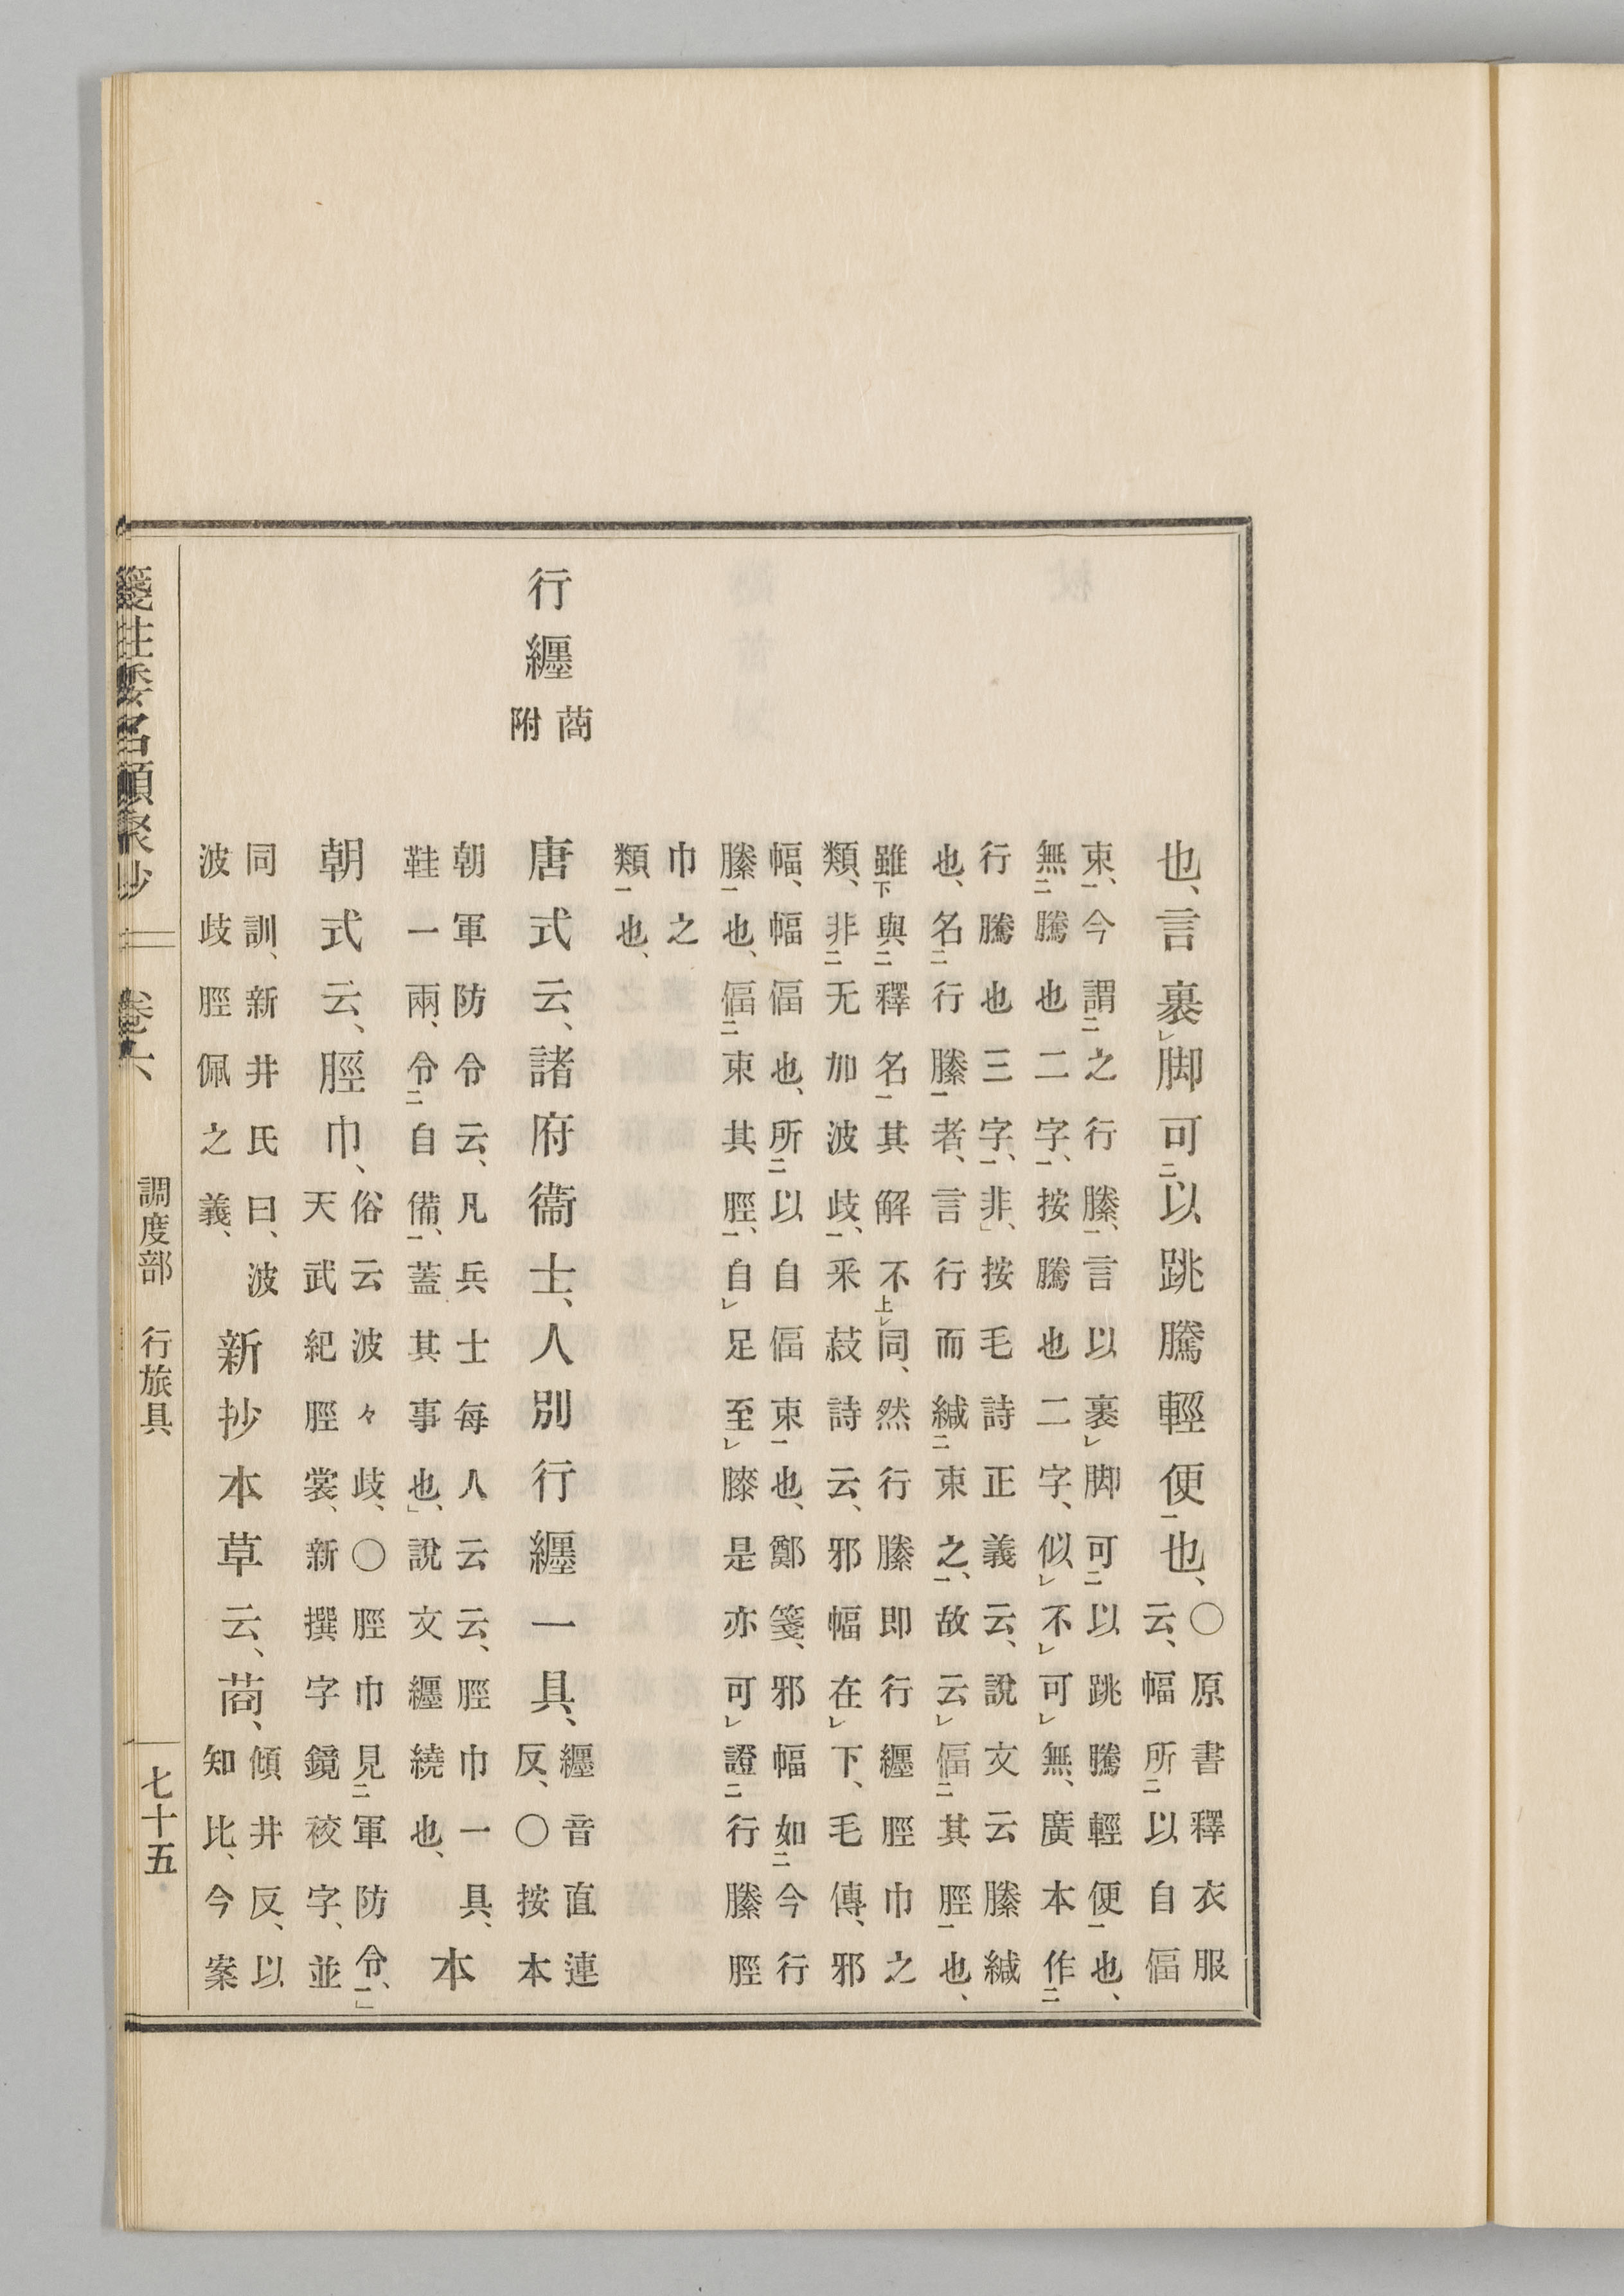 也、言裹レ脚可二以跳騰輕便一也、〇原書釋衣服
云、幅所二以自偪
束一、今謂二之行縢一、言以裹レ脚可二以跳騰輕便一也、
無二騰也二字一、按騰也二字、似レ不レ可レ無、廣本作二
行騰也三字一、非、按毛詩正義云、說文云縢緘
也、名二行縢一者、言行而緘二束之一、故云レ偪二其脛一也、
雖下與二釋名一其解不上レ同、然行縢即行纒脛巾之
類、非二无加波歧一、釆菽詩云、邪幅在レ下、毛傳、邪
幅、幅偪也、所二以自偪束一也、鄭箋、邪幅如二今行
縢一也、偪二束其脛一、自レ足至レ膝是亦可レ證二行縢脛
巾之
類一也、
行纒 䓊附
唐式云、諸府衞士、人別行纒一具、纒音直連
反、〇按本
朝軍防令云、凡兵士每人云云、脛巾一具、
鞋一兩、令二自備一、蓋其事也、說文纒繞也、
本
朝式云、脛巾、俗云波々歧、〇脛巾見二軍防令一、
天武紀脛裳、新撰字鏡䘨字、並
同訓、新井氏曰、波
波歧脛佩之義、
新抄本草云、䓊、傾井反、以
知比、今案
箋註倭名類聚抄 卷六 調度部 行旅具 七十五